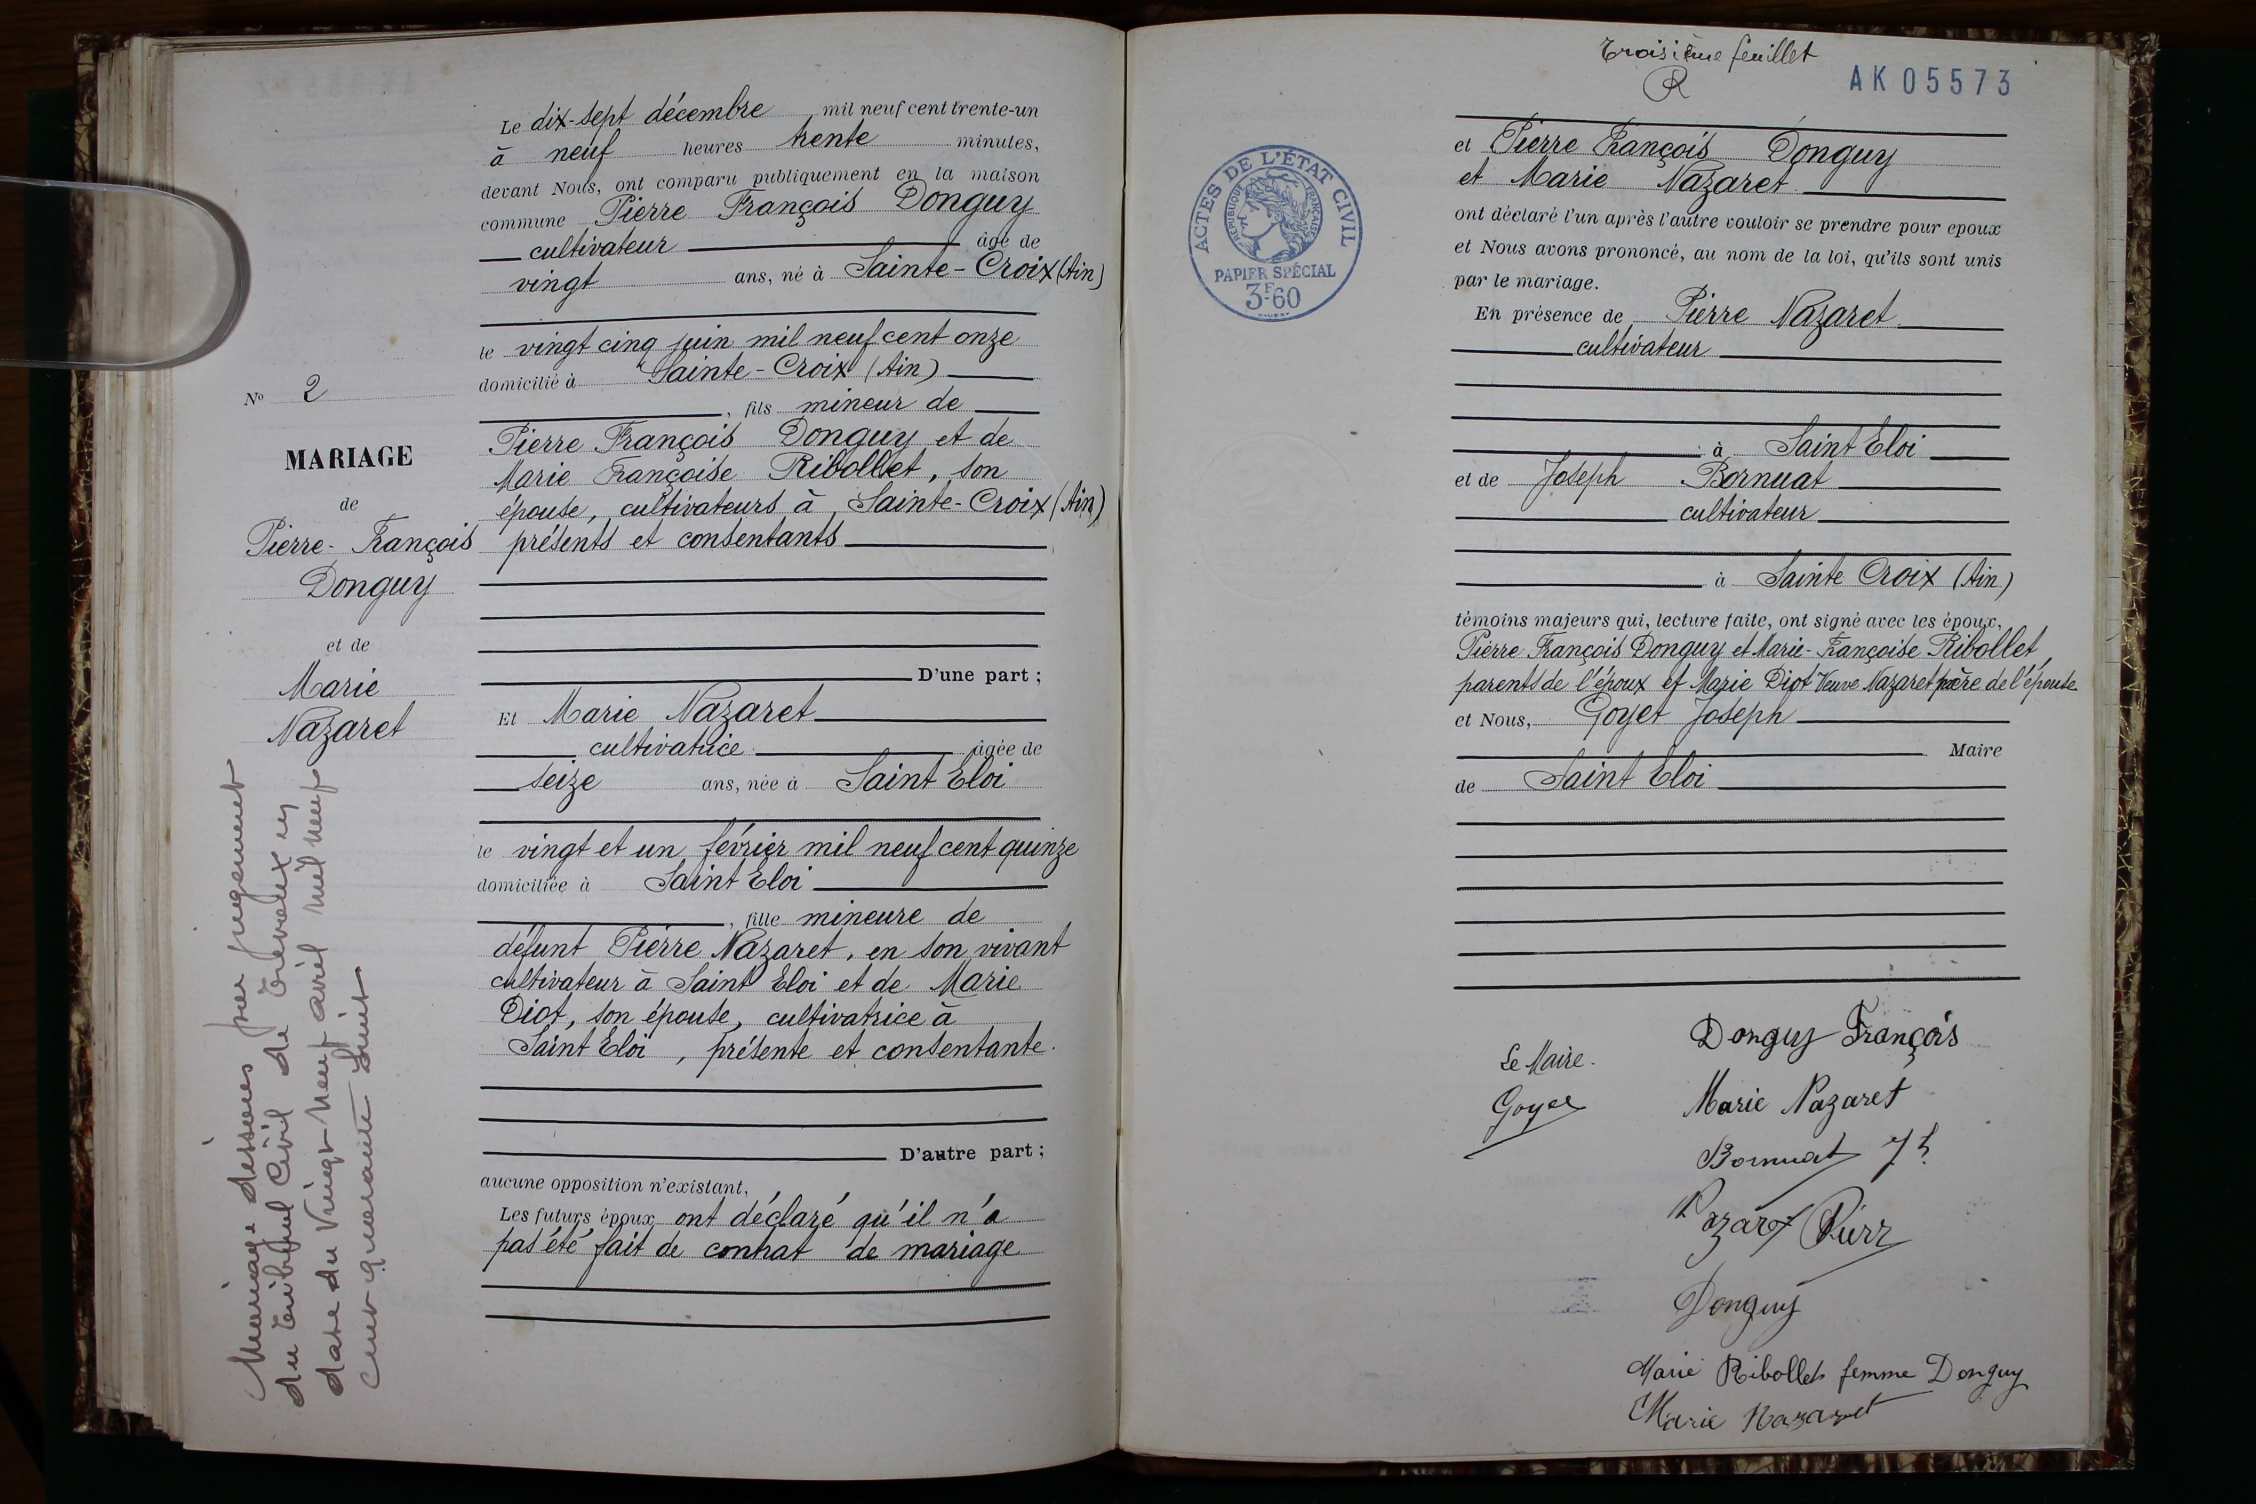 Le dix-sept décembre mil neuf cent trente-un
à neuf heures trente minutes,
devant Nous, ont comparu publiquement en la maison
commune Pierre François Donguy
cultivateur âgé de
vingt ans, né à Sainte-Croix (Ain)
le vingt cinq juin mil neuf cent onze
domicilié à Sainte-Croix (Ain)
, fils mineur de
Pierre François Donguy et de
Marie Françoise Ribollet, son
épouse, cultivateurs à Sainte-Croix (Ain)
présents et consentants
D'une part ;
Et Marie Nazaret
cultivatrice âgée de
seize ans, née à Saint Eloi
le vingt et un février mil neuf cent quinze
domiciliée à Saint Eloi
, fille mineure de
défunt Pierre Nazaret, en son vivant
cultivateur à Saint Eloi et de Marie
Diot, son épouse, cultivatrice à
Saint Eloi, présente et consentante.
D'autre part ;
aucune opposition n'existant,
Les futurs époux ont déclaré qu'il n'a
pas été fait de contrat de mariage
No 2
MARIAGE
de
Pierre-François
Donguy
et de
Marie
Nazaret
Mariage dissous par jugement
du Tribunal Civil de Trévoux en
date du Vingt-neuf avril mil neuf
cent quarante huit
Troisième feuillet
R
AK05573
ACTES DE L'ÉTAT CIVIL
RÉPUBLIQUE FRANÇAISE
PAPIER SPÉCIAL
3F60
et Pierre François Donguy
et Marie Nazaret
ont déclaré l'un après l'autre vouloir se prendre pour époux
et Nous avons prononcé, au nom de la loi, qu'ils sont unis
par le mariage.
En présence de Pierre Nazaret
cultivateur
à Saint Eloi
et de Joseph Bornuat
cultivateur
à Sainte Croix (Ain)
témoins majeurs qui, lecture faite, ont signé avec les époux,
Pierre François Donguy et Marie-Françoise Ribollet,
parents de l'époux et Marie Diot Veuve Nazaret mère de l'épouse
et Nous, Goyet Joseph
Maire
de Saint Eloi
Le Maire.
Goyet
Donguy François
Marie Nazaret
Bornuat Jh
Nazaret Pierr
Donguy
Marie Ribollet femme Donguy
Marie Nazaret